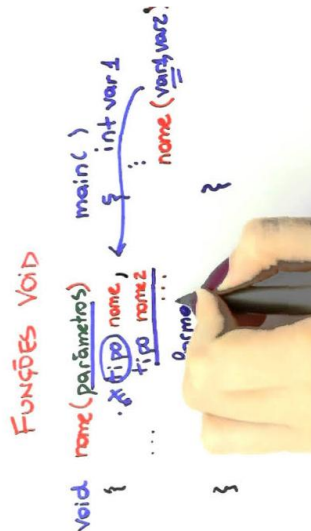 FUNÇÕES VOID
void nome(parâmetros)
{
tipo nome,
tipo nome2
...
...
}
main( )
{
int var1
⋮
nome(var1,var2);
}